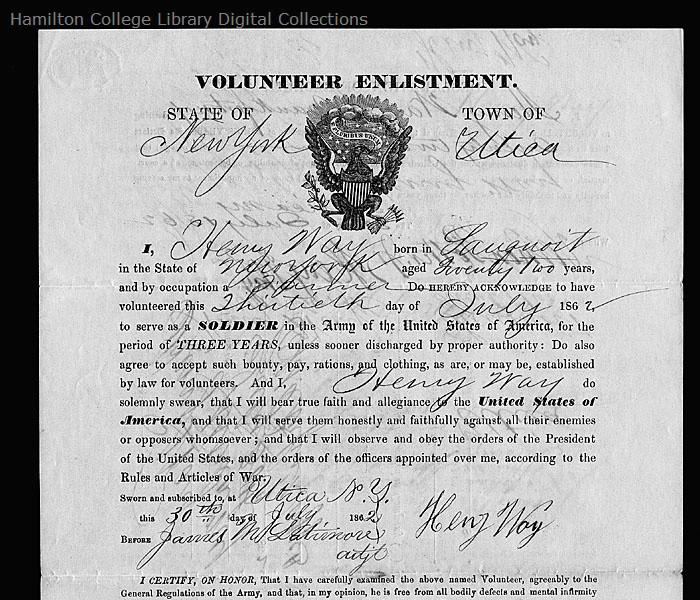 Hamilton College Library Digital Collections
VOLUNTEER ENLISTMENT.
STATE OF TOWN OF
New York Utica
E PLURIBUS UNUM
I, Henry Way born in Sauquoit
in the State of New York aged Twenty two years,
and by occupation a Farmer Do HEREBY ACKNOWLEDGE to have
volunteered this Thirtieth day of July 1862
to serve as a SOLDIER in the Army of the United States of America, for the
period of THREE YEARS, unless sooner discharged by proper authority: Do also
agree to accept such bounty, pay, rations, and clothing, as are, or may be, established
by law for volunteers. And I, Henry Way do
solemnly swear, that I will bear true faith and allegiance to the United States of
America, and that I will serve them honestly and faithfully against all their enemies
or opposers whomsoever; and that I will observe and obey the orders of the President
of the United States, and the orders of the officers appointed over me, according to the
Rules and Articles of War.
Sworn and subscribed to, at Utica N. Y.
this 30th day of July 1862
Henry Way
BEFORE James M Latimore
adjt
I CERTIFY, ON HONOR, That I have carefully examined the above named Volunteer, agreeably to the
General Regulations of the Army, and that, in my opinion, he is free from all bodily defects and mental infirmity